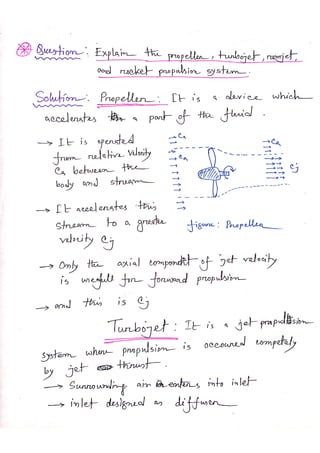 Question: Explain the propeller, turbojet, ramjet,
and rocket propulsion system.
Solution: Propeller: It is a device which
accelerates a part of the fluid.
→ It is operated
from relative velocity
Ca between the
body and stream
Ca
Ca
Ca
Cj
figure: Propeller
→ It accelerates this
stream to a greater
velocity Cj
→ Only the axial component of jet velocity
is useful for forward propulsion
→ and this is Cj
Turbojet: It is a jet propulsion
system where propulsion is occoured competely
by jet thrust.
→ Surrounding air enters into inlet
→ inlet designed as diffuser